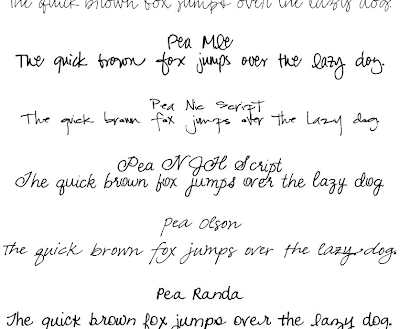 The quick brown fox jumps over the lazy dog.
Pea Mle
The quick brown fox jumps over the lazy dog.
Pea Nic Script
The quick brown fox jumps over the lazy dog
Pea NJH Script
The quick brown fox jumps over the lazy dog
Pea Olson
The quick brown fox jumps over the lazy dog.
Pea Randa
The quick brown fox jumps over the lazy dog.